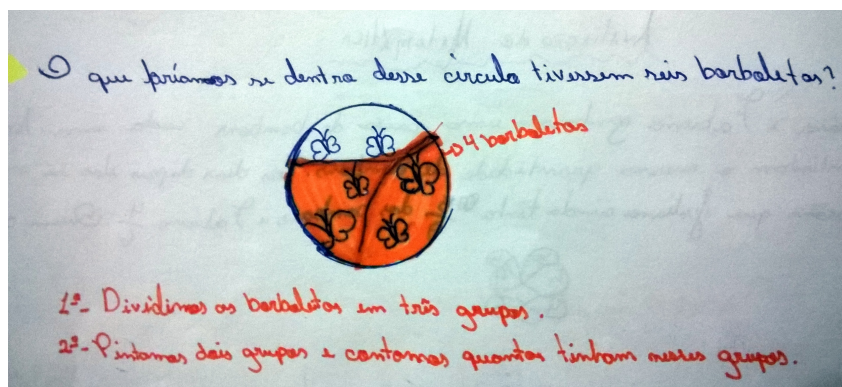 O que faríamos se dentro desse círculo tivessem seis borboletas?
4 borboletas
1º- Dividimos as borboletas em três grupos.
2º- Pintamos dois grupos e contamos quantas tinham nesses grupos.